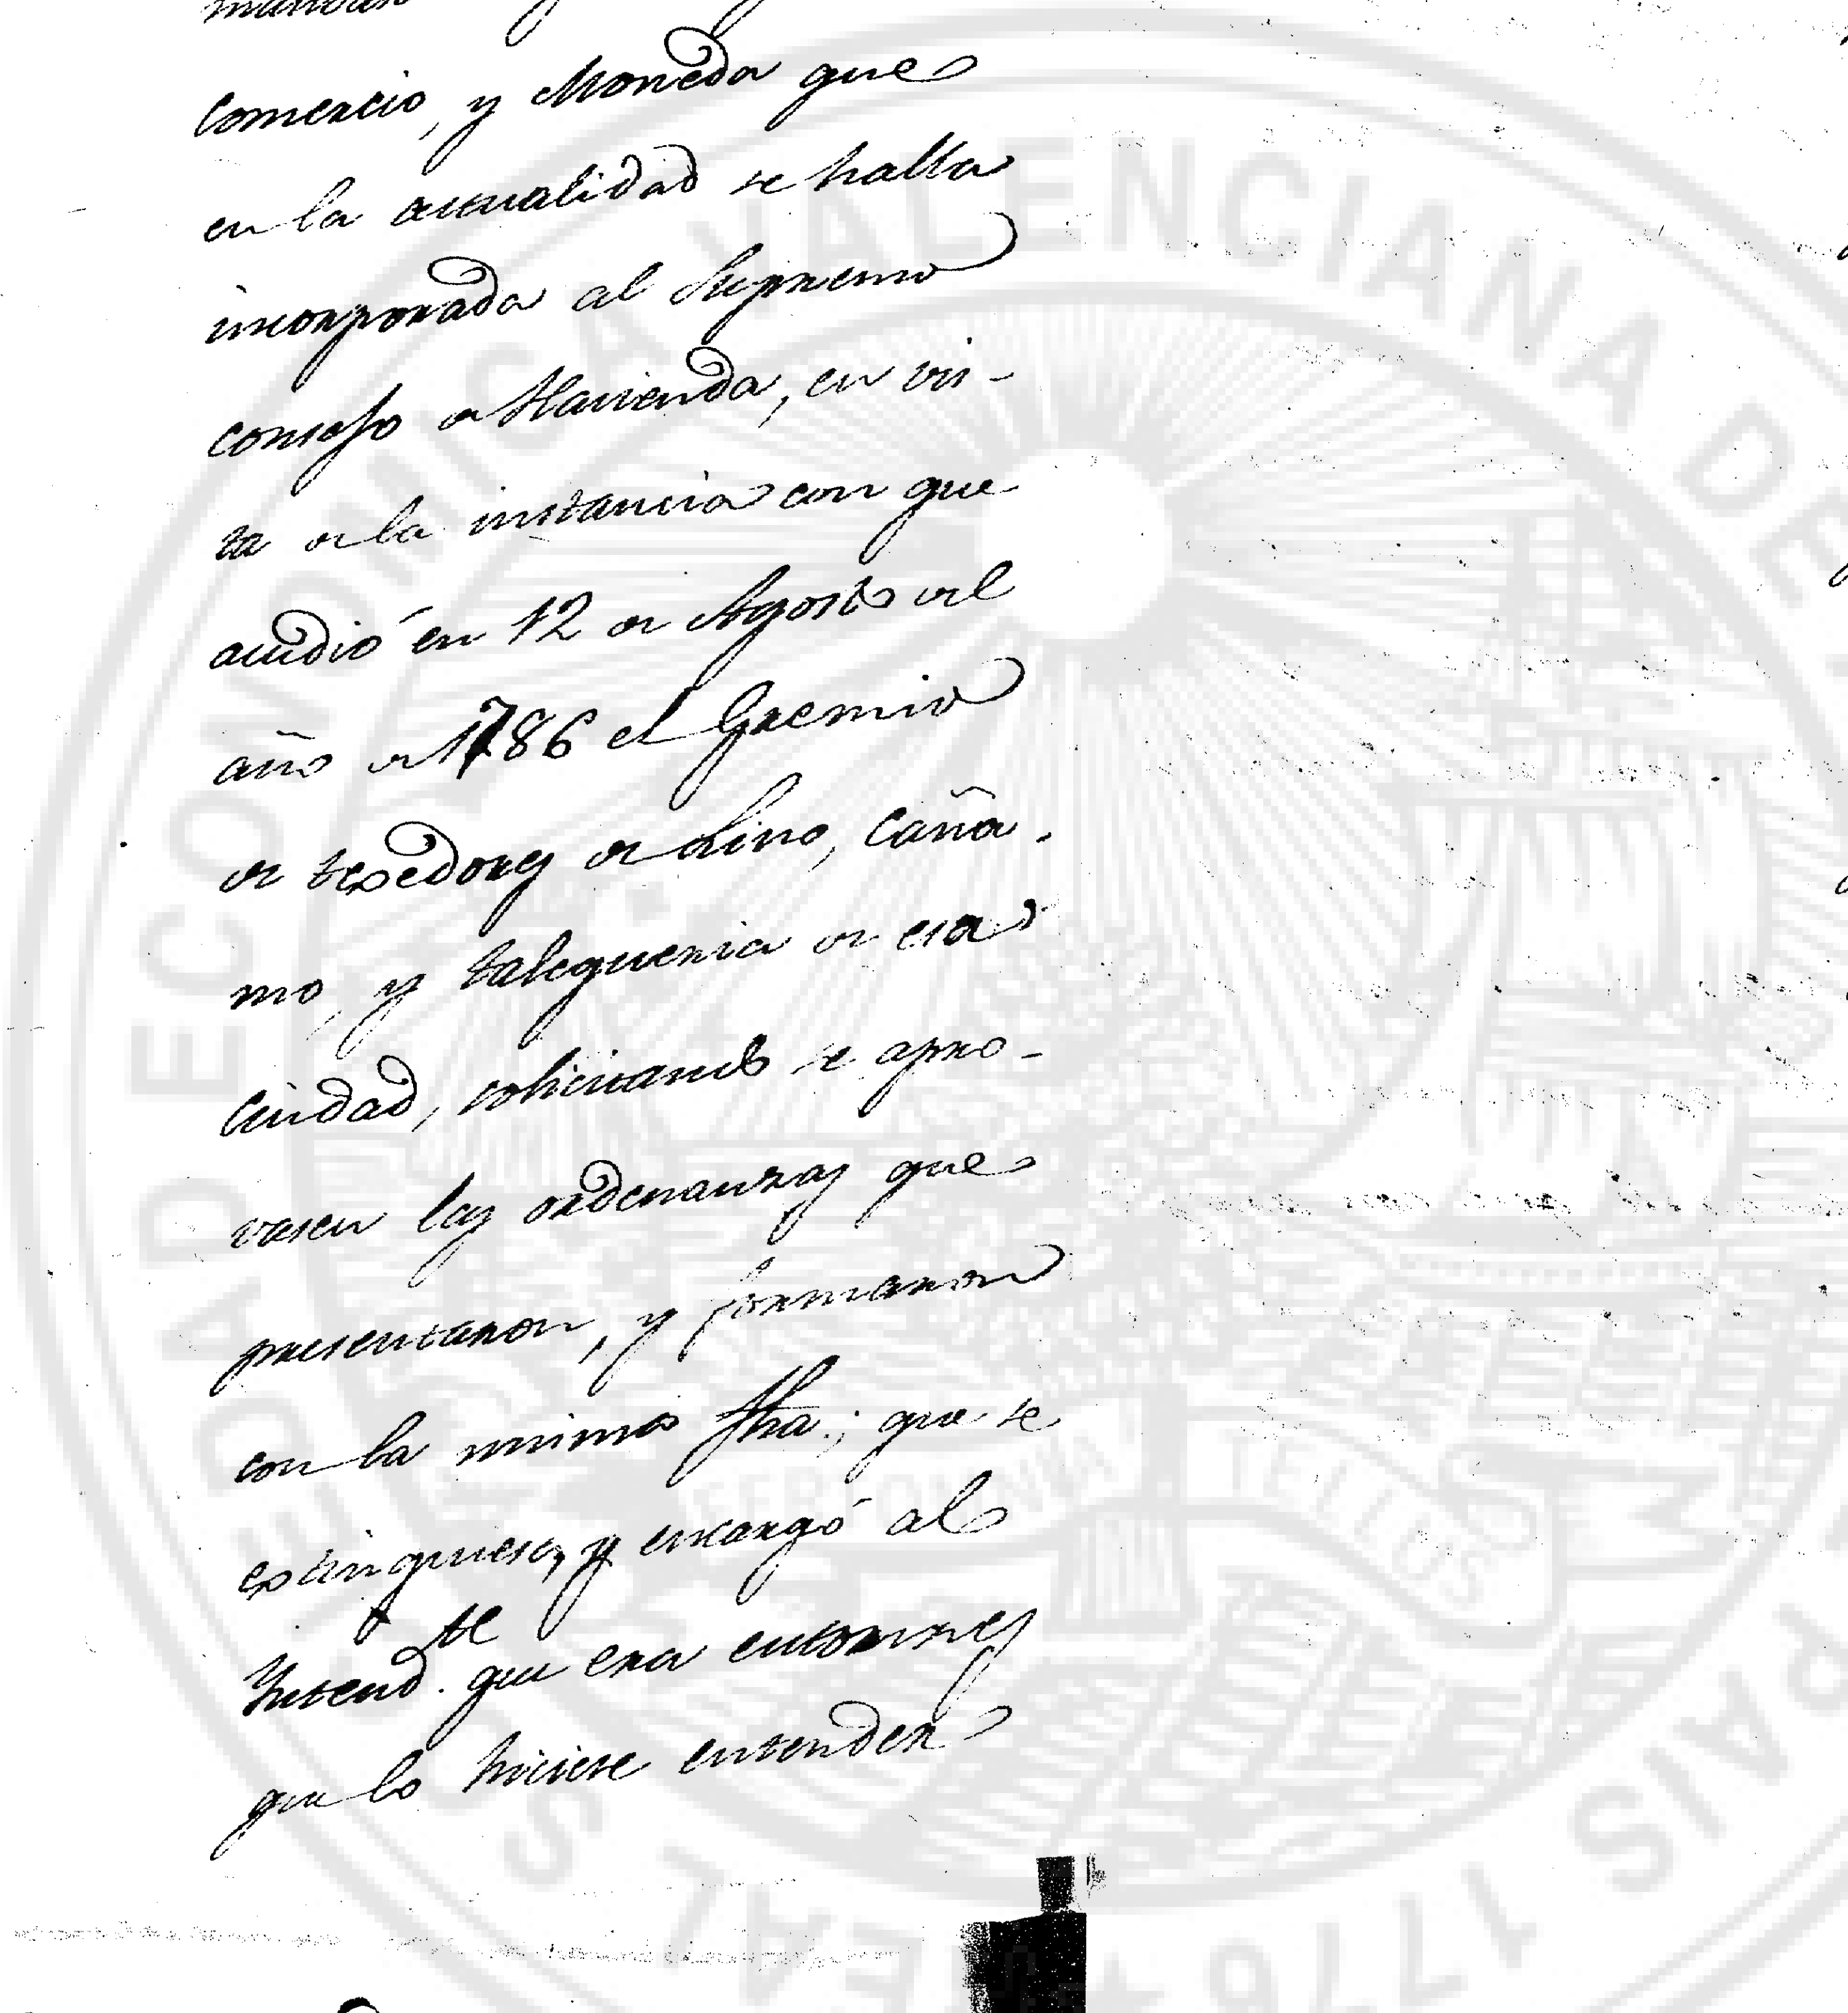 Comercio, y Moneda que
en la actualidad se halla
incorporada al Supremo
consejo de Hacienda, en vis-
ta de la instancia con que
acudió en 12 de Agosto del
año de 1786 el Gremio
de texedores de Lino, Caña-
mo, y talegueria de esa
Ciudad, solicitando se apro-
vasen las ordenanzas que
presentaron, y formaron
con la misma fha; que se
extinguiese, y encargó al
Yntend.te que era entonces
que lo hiciese entender
ECONOMICA VALENCIANA DE
PAIS 1776